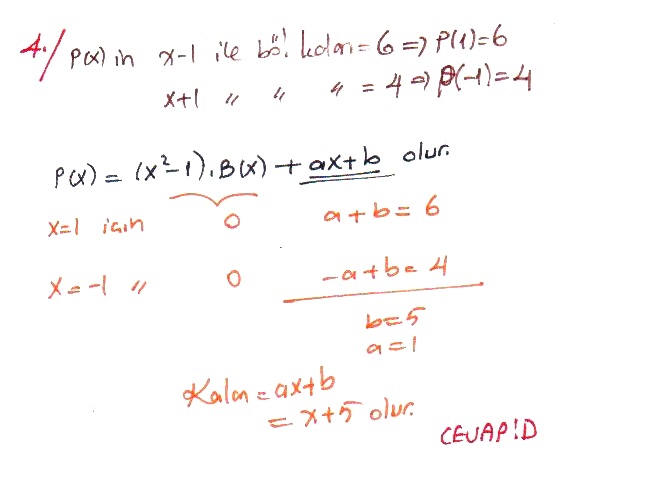 4./ P(x) in x-1 ile böl. kalan = 6 => P(1)=6
x+1 〃 〃 〃 = 4 => P(-1)=4
P(x) = (x²-1).B(x) + ax+b olur.
x=1 için 0 a+b=6
x=-1 〃 0 -a+b=4
b=5
a=1
Kalan = ax+b
= x+5 olur.
CEVAP:D